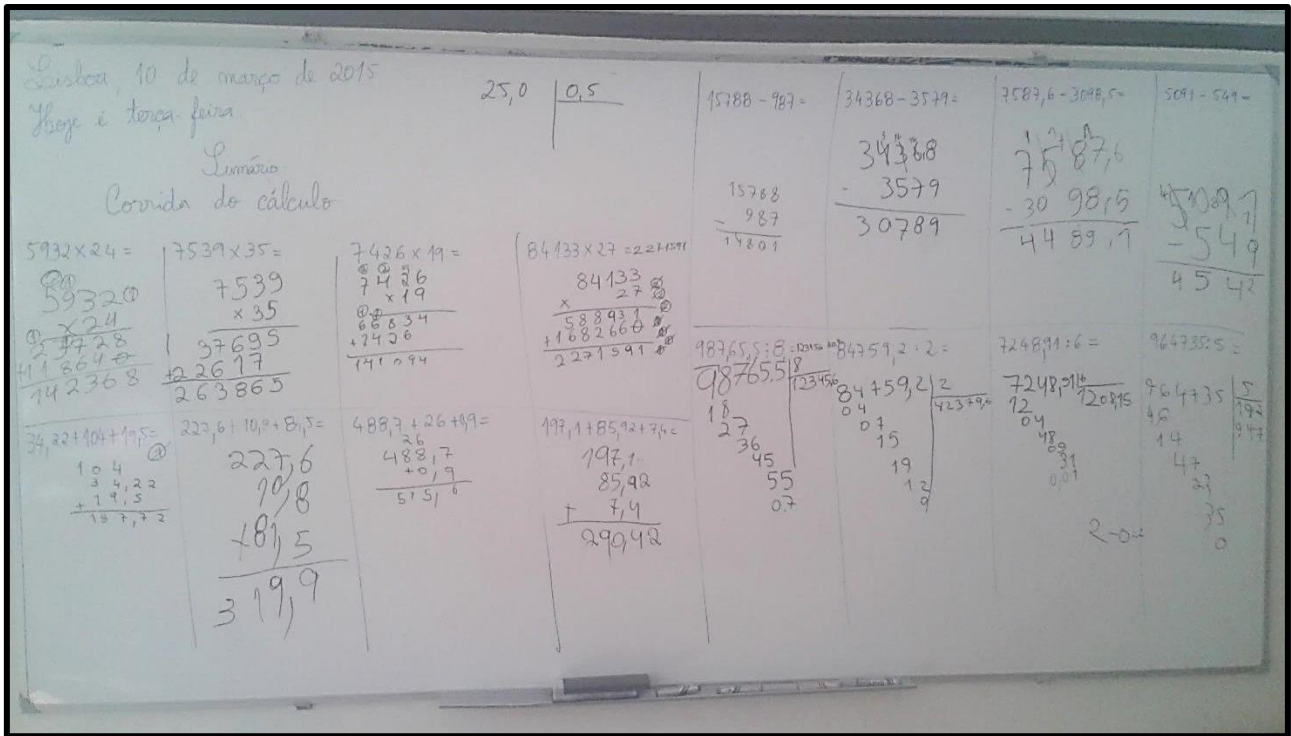 Lisboa, 10 de março de 2015
Hoje é terça-feira
Sumário
Corrida do cálculo
25,0 0,5
5932 x 24 =
5932
x 24
23728
+118640
142368
7539 x 35 =
7539
x 35
37695
+22617
263865
7426 x 19 =
7426
x 19
66834
+7426
141094
84133 x 27 = 2271591
84133
x 27
588931
+1682660
2271591
34,22+104+19,5=
104
34,22
+19,5
157,72
227,6+10,8+81,5=
227,6
10,8
+81,5
319,9
488,7+26+0,9=
26
488,7
+0,9
515,6
197,1+85,92+7,4=
197,1
85,92
+ 7,4
290,42
15788 - 987=
15788
- 987
14801
34368 - 3579=
34368
- 3579
30789
7587,6 - 3098,5=
7587,6
-3098,5
4489,1
5091 - 549=
5091
-549
4542
98765,5 : 8 =
98765,5 8
12345,6
18
27
36
45
55
0,7
84759,2 : 2=
84759,2 2
42379,6
04
07
15
19
12
7248,91 : 6 =
1208,15
12
04
48
09
31
0,01
2-0=
964735 : 5 =
964735 5
192
947
46
14
47
23
35
0